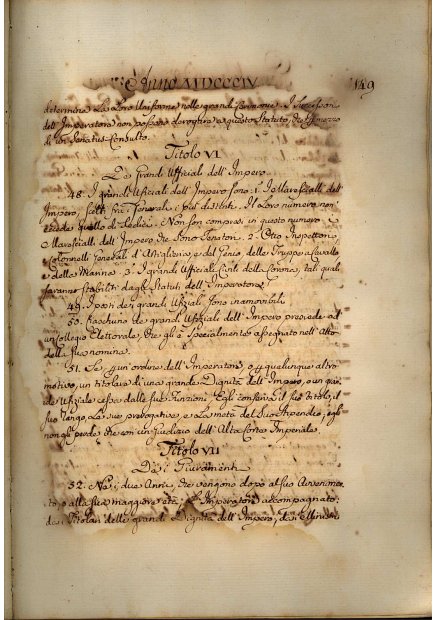 Anno MDCCCIV
149
determina la loro Uniforme nelle grandi Cerimonie. I Successori
dell'Imperatore non possono derogare a questo Statuto, che
di un Senatus-Consulto.
Titolo VI.
De' Grandi Uffiziali dell'Impero.
48. I grandi Uffiziali dell'Impero sono: 1. I Marescialli dell'
Impero, scelti fra i Generali i più distinti. Il loro numero non
eccede quello di Sedici. Non son compresi in questo numero i
Marescialli dell'Impero che sono Senatori. 2. Otto Inspettori, e
Colonnelli Generali d'Artiglieria, e del Genio delle Truppe a Cavallo
e della Marina. 3. I grandi Uffiziali Civili della Corona, tali quali
saranno stabiliti dagli Statuti dell'Imperatore.
49. I posti dei grandi Uffiziali sono inamovibili.
50. Ciaschuno de' grandi Uffiziali dell'Impero presiede ad
un Collegio Elettorale, che gli è specialmente assegnato nell'Atto
della sua nomina.
51. Se un ordine dell'Imperatore, o qualunque altro
motivo, un titolare di una grande Dignità dell'Impero, o un gran
de Uffiziale cessa dalle sue Funzioni, Egli conserva il suo titolo, il
suo rango, le sue prerogative, e la metà del suo Stipendio; egli
non gli perde che con un Giudizio dell'Alta Corte Imperiale.
Titolo VII
Dei Giuramenti
52. Nei due Anni, che vengono dopo al suo Avvenimen
to, o alla sua maggiore età, l'Imperatore accompagnato
da Titolari delle grandi Dignità dell'Impero, dai Ministri